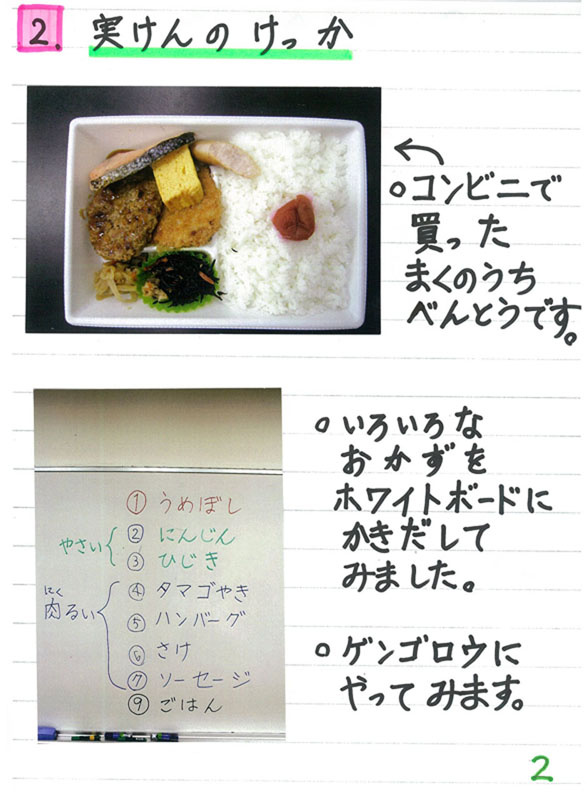 2. 実けんのけっか
○コンビニで
買った
まくのうち
べんとうです。
○いろいろな
おかずを
ホワイトボードに
かきだして
みました。
○ゲンゴロウに
やってみます。
①うめぼし
やさい
②にんじん
③ひじき
にく
肉るい
④タマゴやき
⑤ハンバーグ
⑥さけ
⑦ソーセージ
⑨ごはん
2